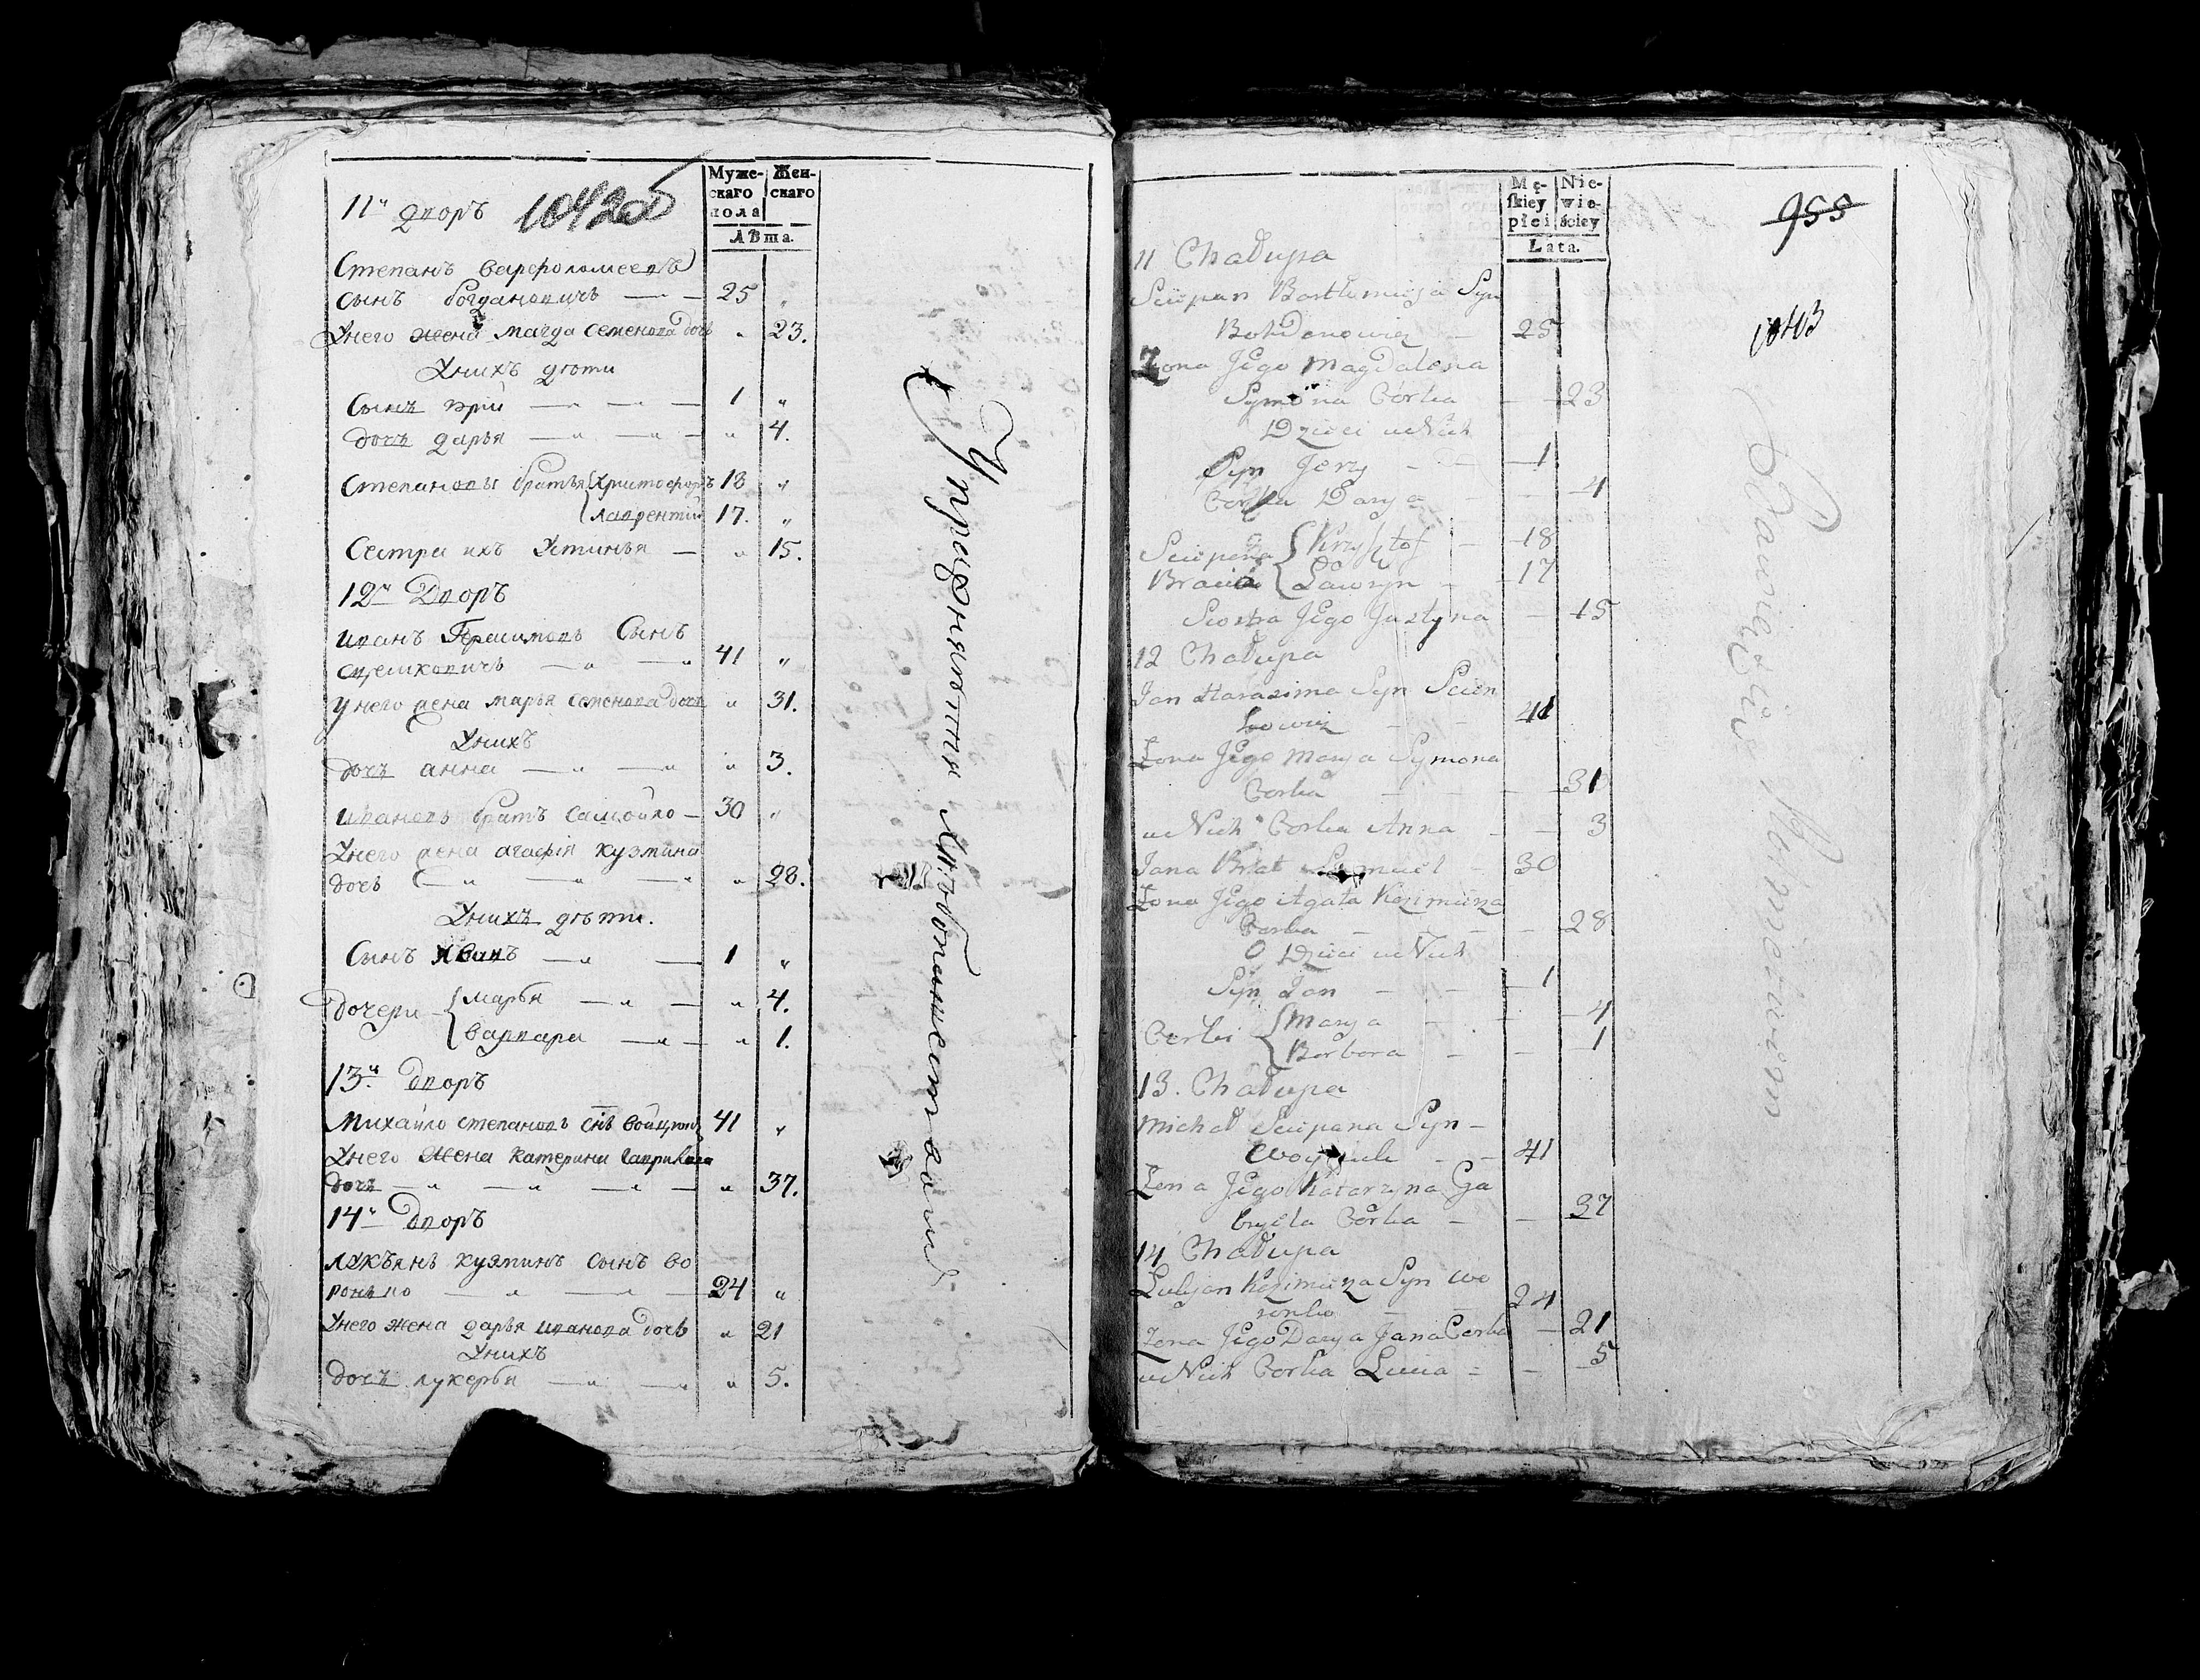 11й дворъ 1042об
Муже-
скаго
пола
Жен-
скаго
Лѣта.
Степанъ варфоломеевъ
сынъ богдановичъ — 25 "
Унего жена магда семенова дочь " 23.
Унихъ дѣти
Сынъ юрій — 1 "
дочь дарья — " 4.
Степановы братья { Христофоръ 18 "
{ лаврентій 17. "
Сестра ихъ Устинья — " 15.
12й Дворъ
иванъ Герасимовъ Сынъ
сценковичъ — 41 "
унего жена марья семенова дочь " 31.
Унихъ
дочь анна — " 3.
ивановъ братъ самойло — 30 "
Унего жена агафія кузмина
дочь — " 28.
Унихъ дѣти.
Сынъ иванъ — 1 "
дочери { марья — " 4.
{ варвара — " 1.
13й дворъ
Михайло степановъ снъ 41 "
Унего жена катерина
дочь — " 37.
14й дворъ
лукъянъ кузминъ сынъ во
ронько — 24 "
Унего жена дарья иванова дочь " 21
Унихъ
дочь лукерья — " 5.
Mę-
skiey
płci
Nie-
wie-
ściey
Lata.
955
1043
11 Chałupa
Sciepan Bartłomieja Syn
Bohdanowicz — 25
Żona Jego Magdalena
Symona Córka — 23
Dzieci u Nich
Syn Jerzy — 1
Córka Darya — 4
Sciepana { Krzysztof — 18
Bracia { Ławryn — 17
Siostra Jego Justyna — 15
12 Chałupa
Jan Harasima Syn Scien
kowicz — 41
Żona Jego Marya Symona
Corka — 31
u Nich Corka Anna — 3
Jana Brat Samuel — 30
Żona Jego Agata Kazimierza
Corka — 28
Dzieci u Nich
Syn Jan — 1
Corki { Marya — 4
{ Barbara — 1
13. Chałupa
Michał Sciepana Syn —
— 41
Żona Jego Katarzyna Ga
bryela Córka — 37
14 Chałupa
Łukjan Kazimierza Syn Wo
ronko — 24
Żona Jego Darya Jana Corka — 21
u Nich Corka Lucia — 5